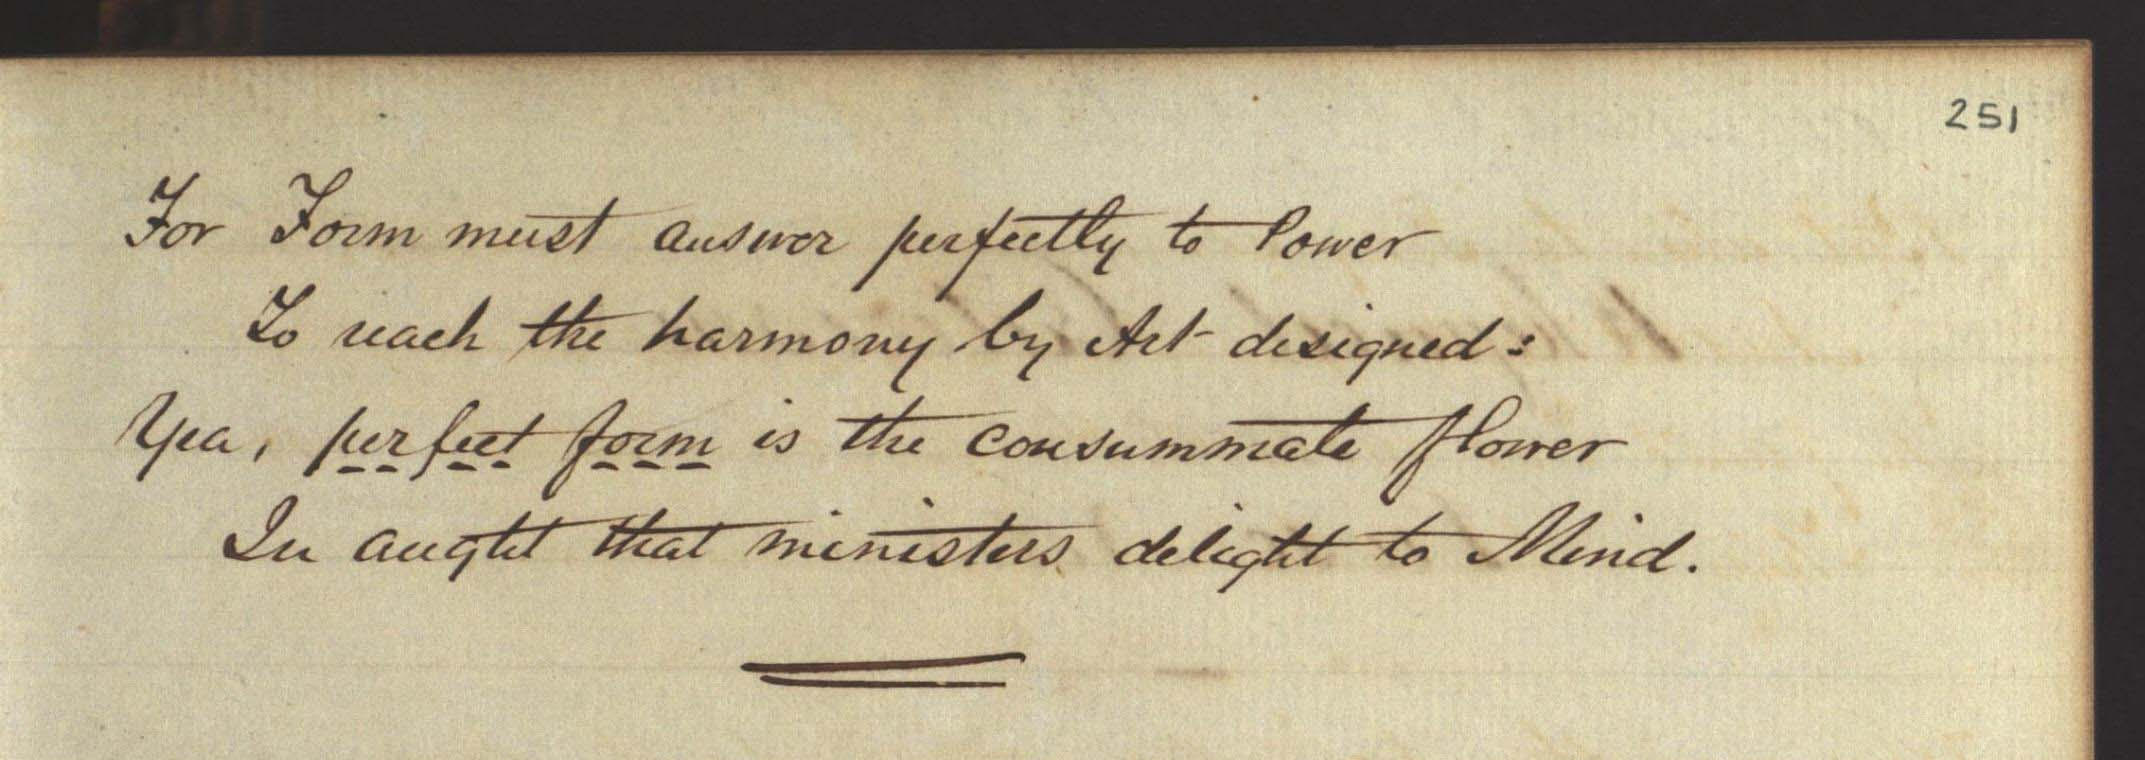 251
For Form must answer perfectly to Power
To reach the harmony by Art designed:
Yea, perfect form is the consummate flower
In aught that ministers delight to Mind.